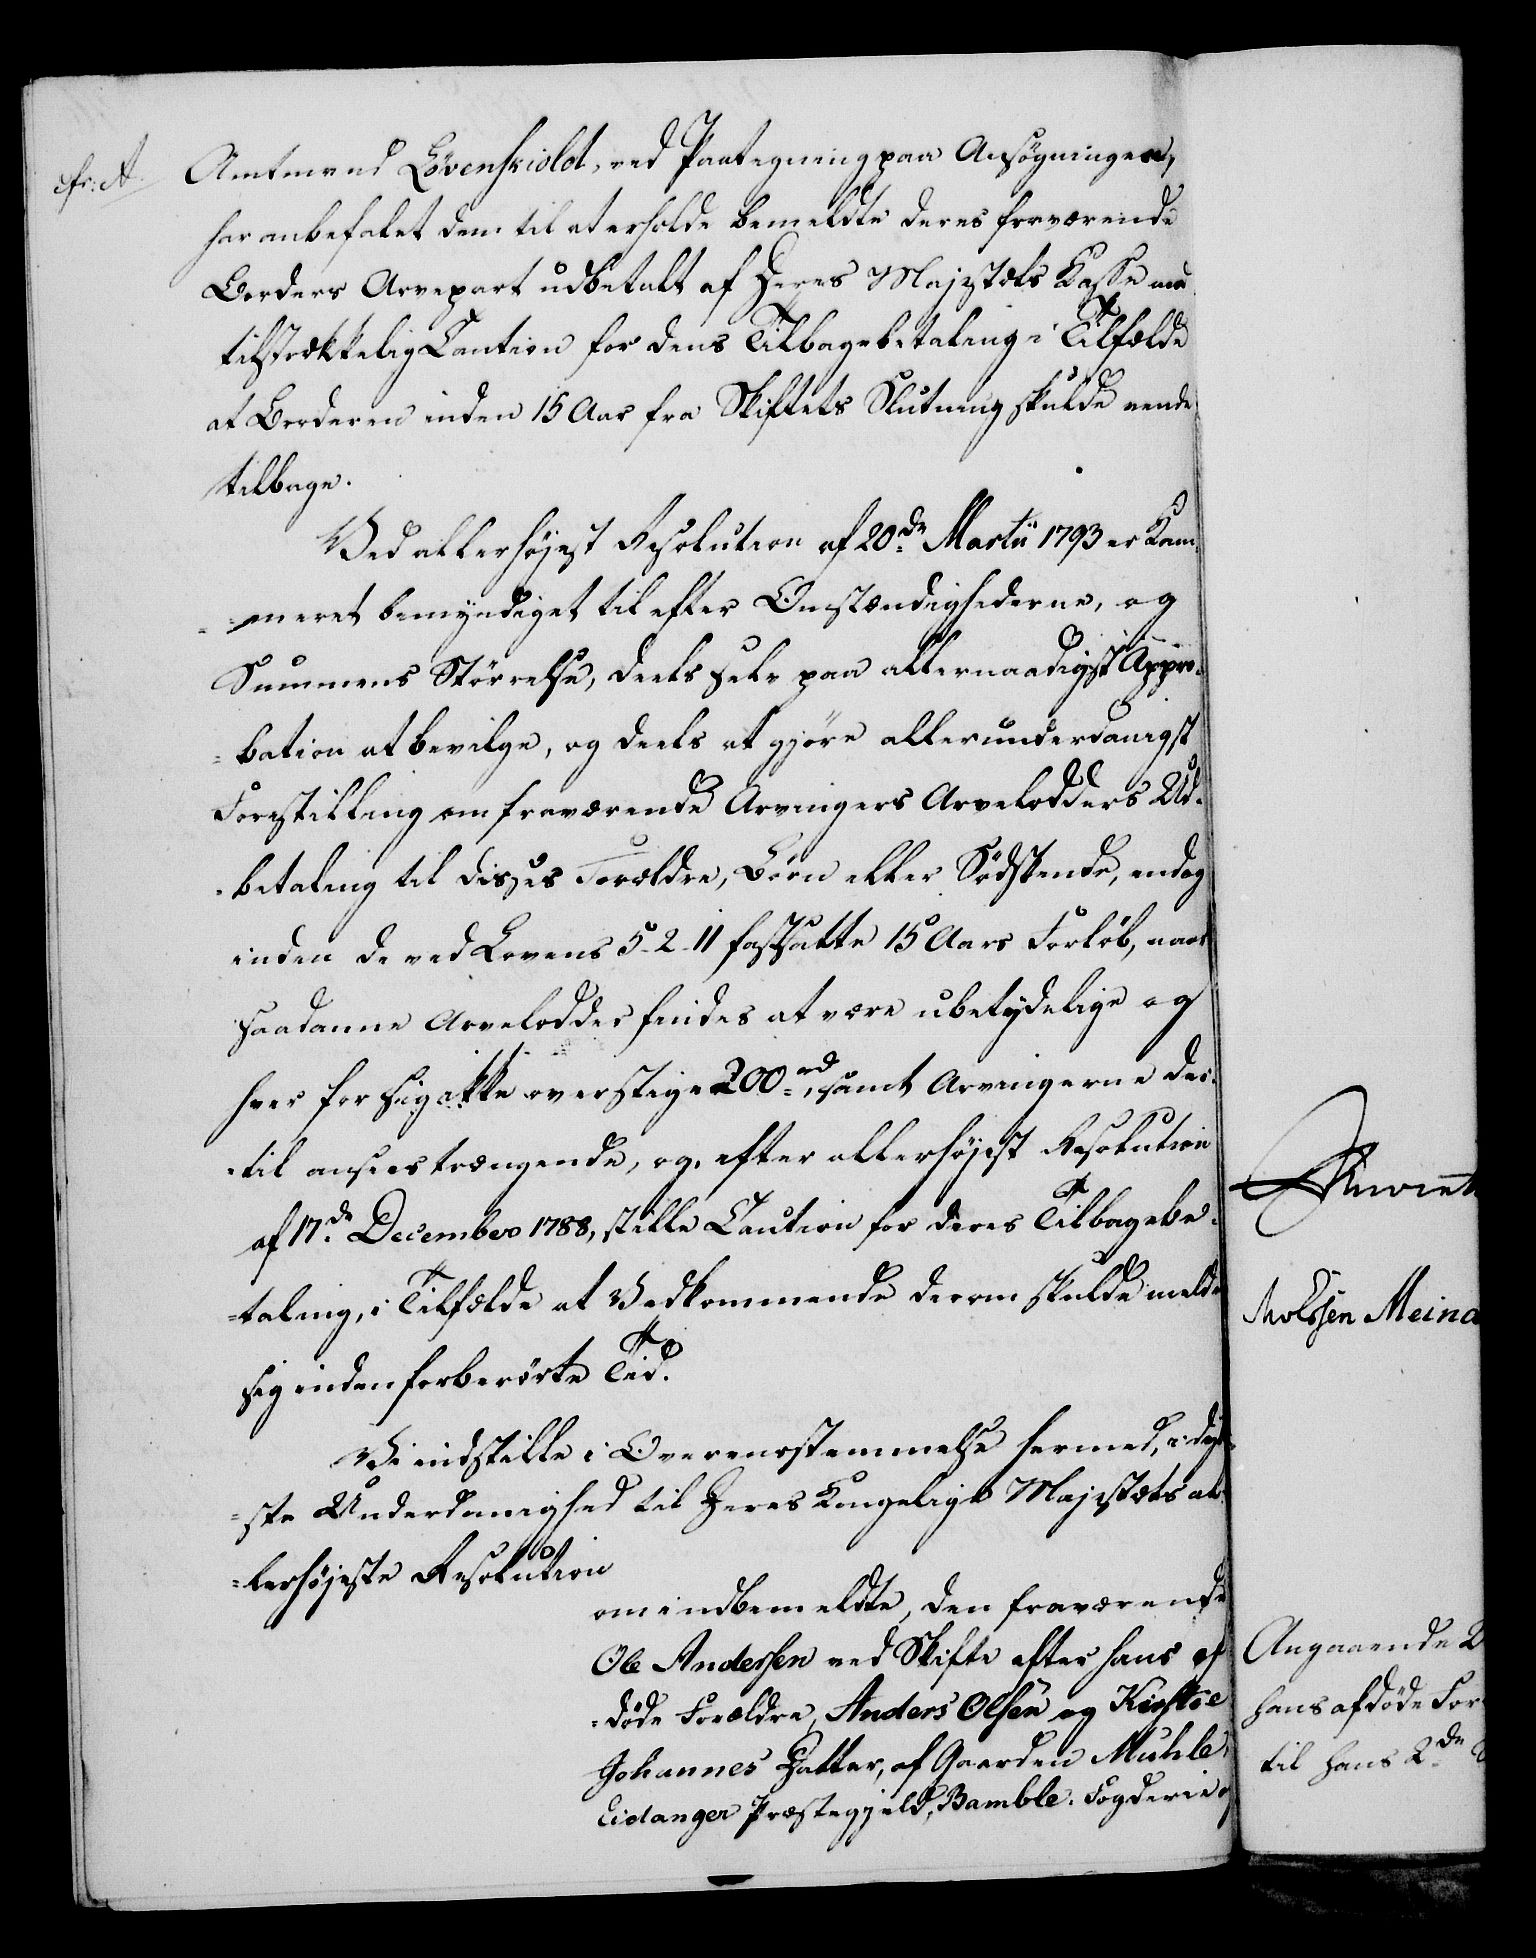 cfr: A.
Amtmand Lövenskiold, ved Paategning paa Ansøgningen,
har anbefalet dem til at erholde bemeldte deres fraværende
Broders Arvepart udbetalt af Deres Majestæts Kasse mod
tilstrækkelig Caution for dens Tilbagebetaling i Tilfælde
at Broderen inden 15 Aar fra Skiftets Slutning skulde vende
tilbage.
Ved allerhøjest Resolution af 20de Martii 1793 er Kam-
=meret bemyndiget til efter Omstændighederne, og
Summens Störrelse, deels selv paa allernaadigst Appro-
=bation at bevilge, og deels at gjöre allerunderdanigst
Forestilling om fraværende Arvingers Arvelodders Ud-
=betaling til disses Forældre, Börn eller Södskende, endog
inden de ved Lovens 5-2-11 fastsatte 15 Aars Forlöb, naar
saadanne Arvelodder findes at være ubetydelige og
hver for sig ikke overstige 200 rd, samt Arvingerne der-
=til ansees trængende, og, efter allerhöjest Resolution
af 17de December 1788, stille Caution for deres Tilbagebe-
=taling, i Tilfælde at Vedkommende derom skulde melde
sig inden forberörte Tid.
Vi indstille i Overensstemmelse hermed, i dyb-
=ste Underdanighed til Deres Kongelige Majestæts al-
=lerhöjeste Resolution
om indbemeldte, den fraværende
Ole Andersen ved Skifte efter hans af-
=döde Forældre, Anders Olsen og Kirstie
Johannes Datter, af Gaarden Muhle,
Eidanger Præstegjeld, Bamble Fogderie
Meina
Angaaende
hans afdöde For
til hans 2de